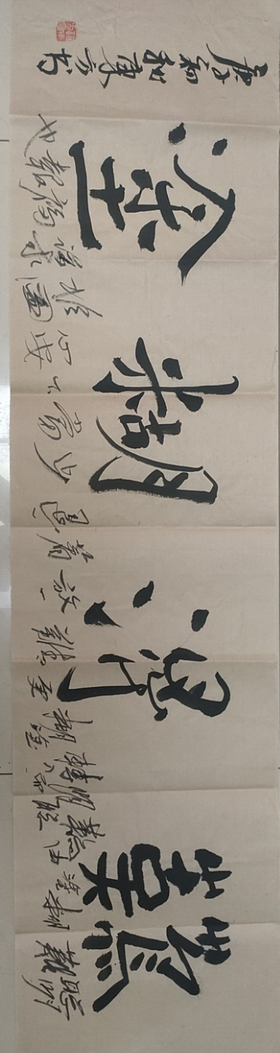 難得糊塗
聰明難糊塗難由聰明轉入糊塗更難放一着退一步當下心安非圖後來福報也